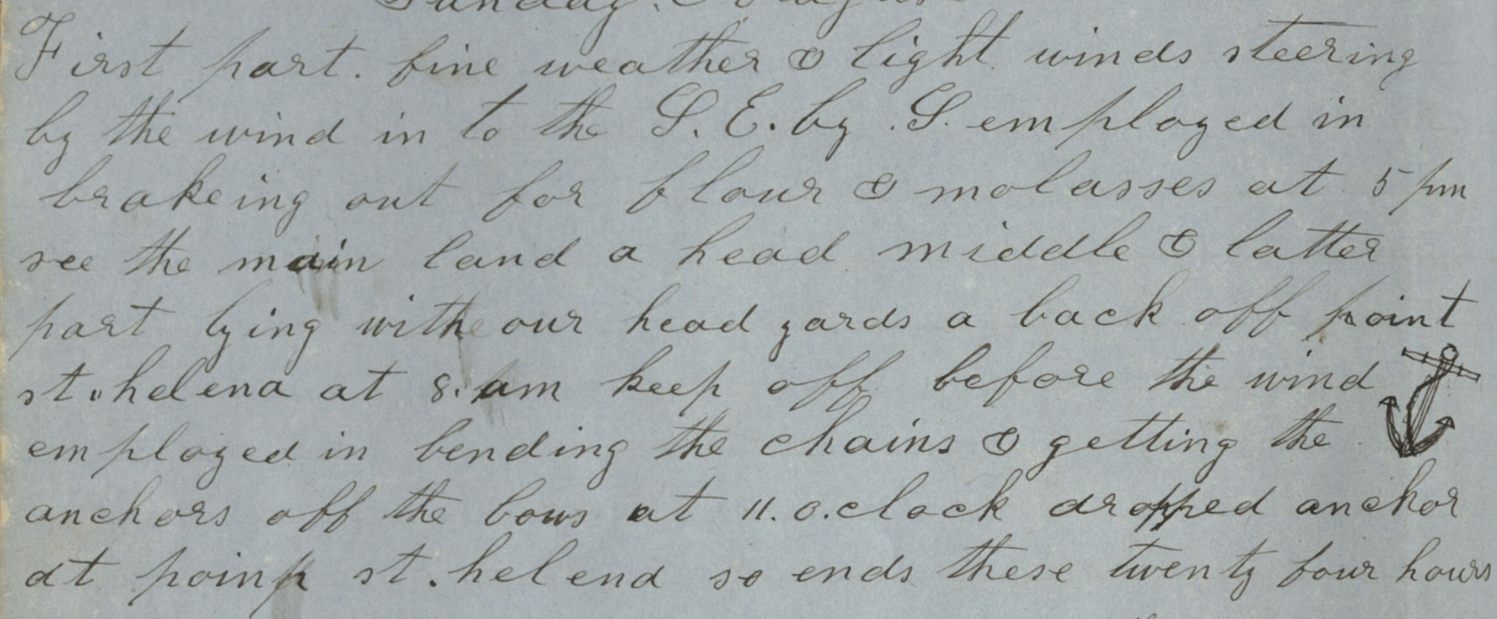 Sunday.
First part. fine weather & light winds steering
by the wind in to the S. E. by .S. employed in
brakeing out for flour & molasses at 5 pm
see the main land a head middle & latter
part lying with our head yards a back off point
st. helena at 8. am keep off before the wind
employed in bending the chains & getting the
anchors off the bows at 11. o.clock dropped anchor
at poinp st. helend so ends these twenty four hours